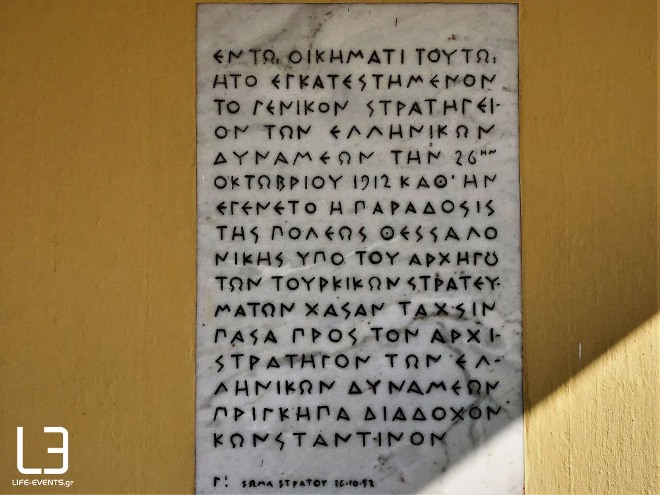 ΕΝ ΤΩι ΟΙΚΗΜΑΤΙ ΤΟΥΤΩι
ΗΤΟ ΕΓΚΑΤΕΣΤΗΜΕΝΟΝ
ΤΟ ΓΕΝΙΚΟΝ ΣΤΡΑΤΗΓΕΙ-
ΟΝ ΤΩΝ ΕΛΛΗΝΙΚΩΝ
ΔΥΝΑΜΕΩΝ ΤΗΝ 26ΗΝ
ΟΚΤΩΒΡΙΟΥ 1912 ΚΑΘ' ΗΝ
ΕΓΕΝΕΤΟ Η ΠΑΡΑΔΟΣΙΣ
ΤΗΣ ΠΟΛΕΩΣ ΘΕΣΣΑΛΟ
ΝΙΚΗΣ ΥΠΟ ΤΟΥ ΑΡΧΗΓΟΥ
ΤΩΝ ΤΟΥΡΚΙΚΩΝ ΣΤΡΑΤΕΥ-
ΜΑΤΩΝ ΧΑΣΑΝ ΤΑΧΣΙΝ
ΠΑΣΑ ΠΡΟΣ ΤΟΝ ΑΡΧΙ-
ΣΤΡΑΤΗΓΟΝ ΤΩΝ ΕΛ-
ΛΗΝΙΚΩΝ ΔΥΝΑΜΕΩΝ
ΠΡΙΓΚΗΠΑ ΔΙΑΔΟΧΟΝ
ΚΩΝΣΤΑΝΤΙΝΟΝ
Γ! ΣΩΜΑ ΣΤΡΑΤΟΥ 26·10·52
LIFE-EVENTS.gr